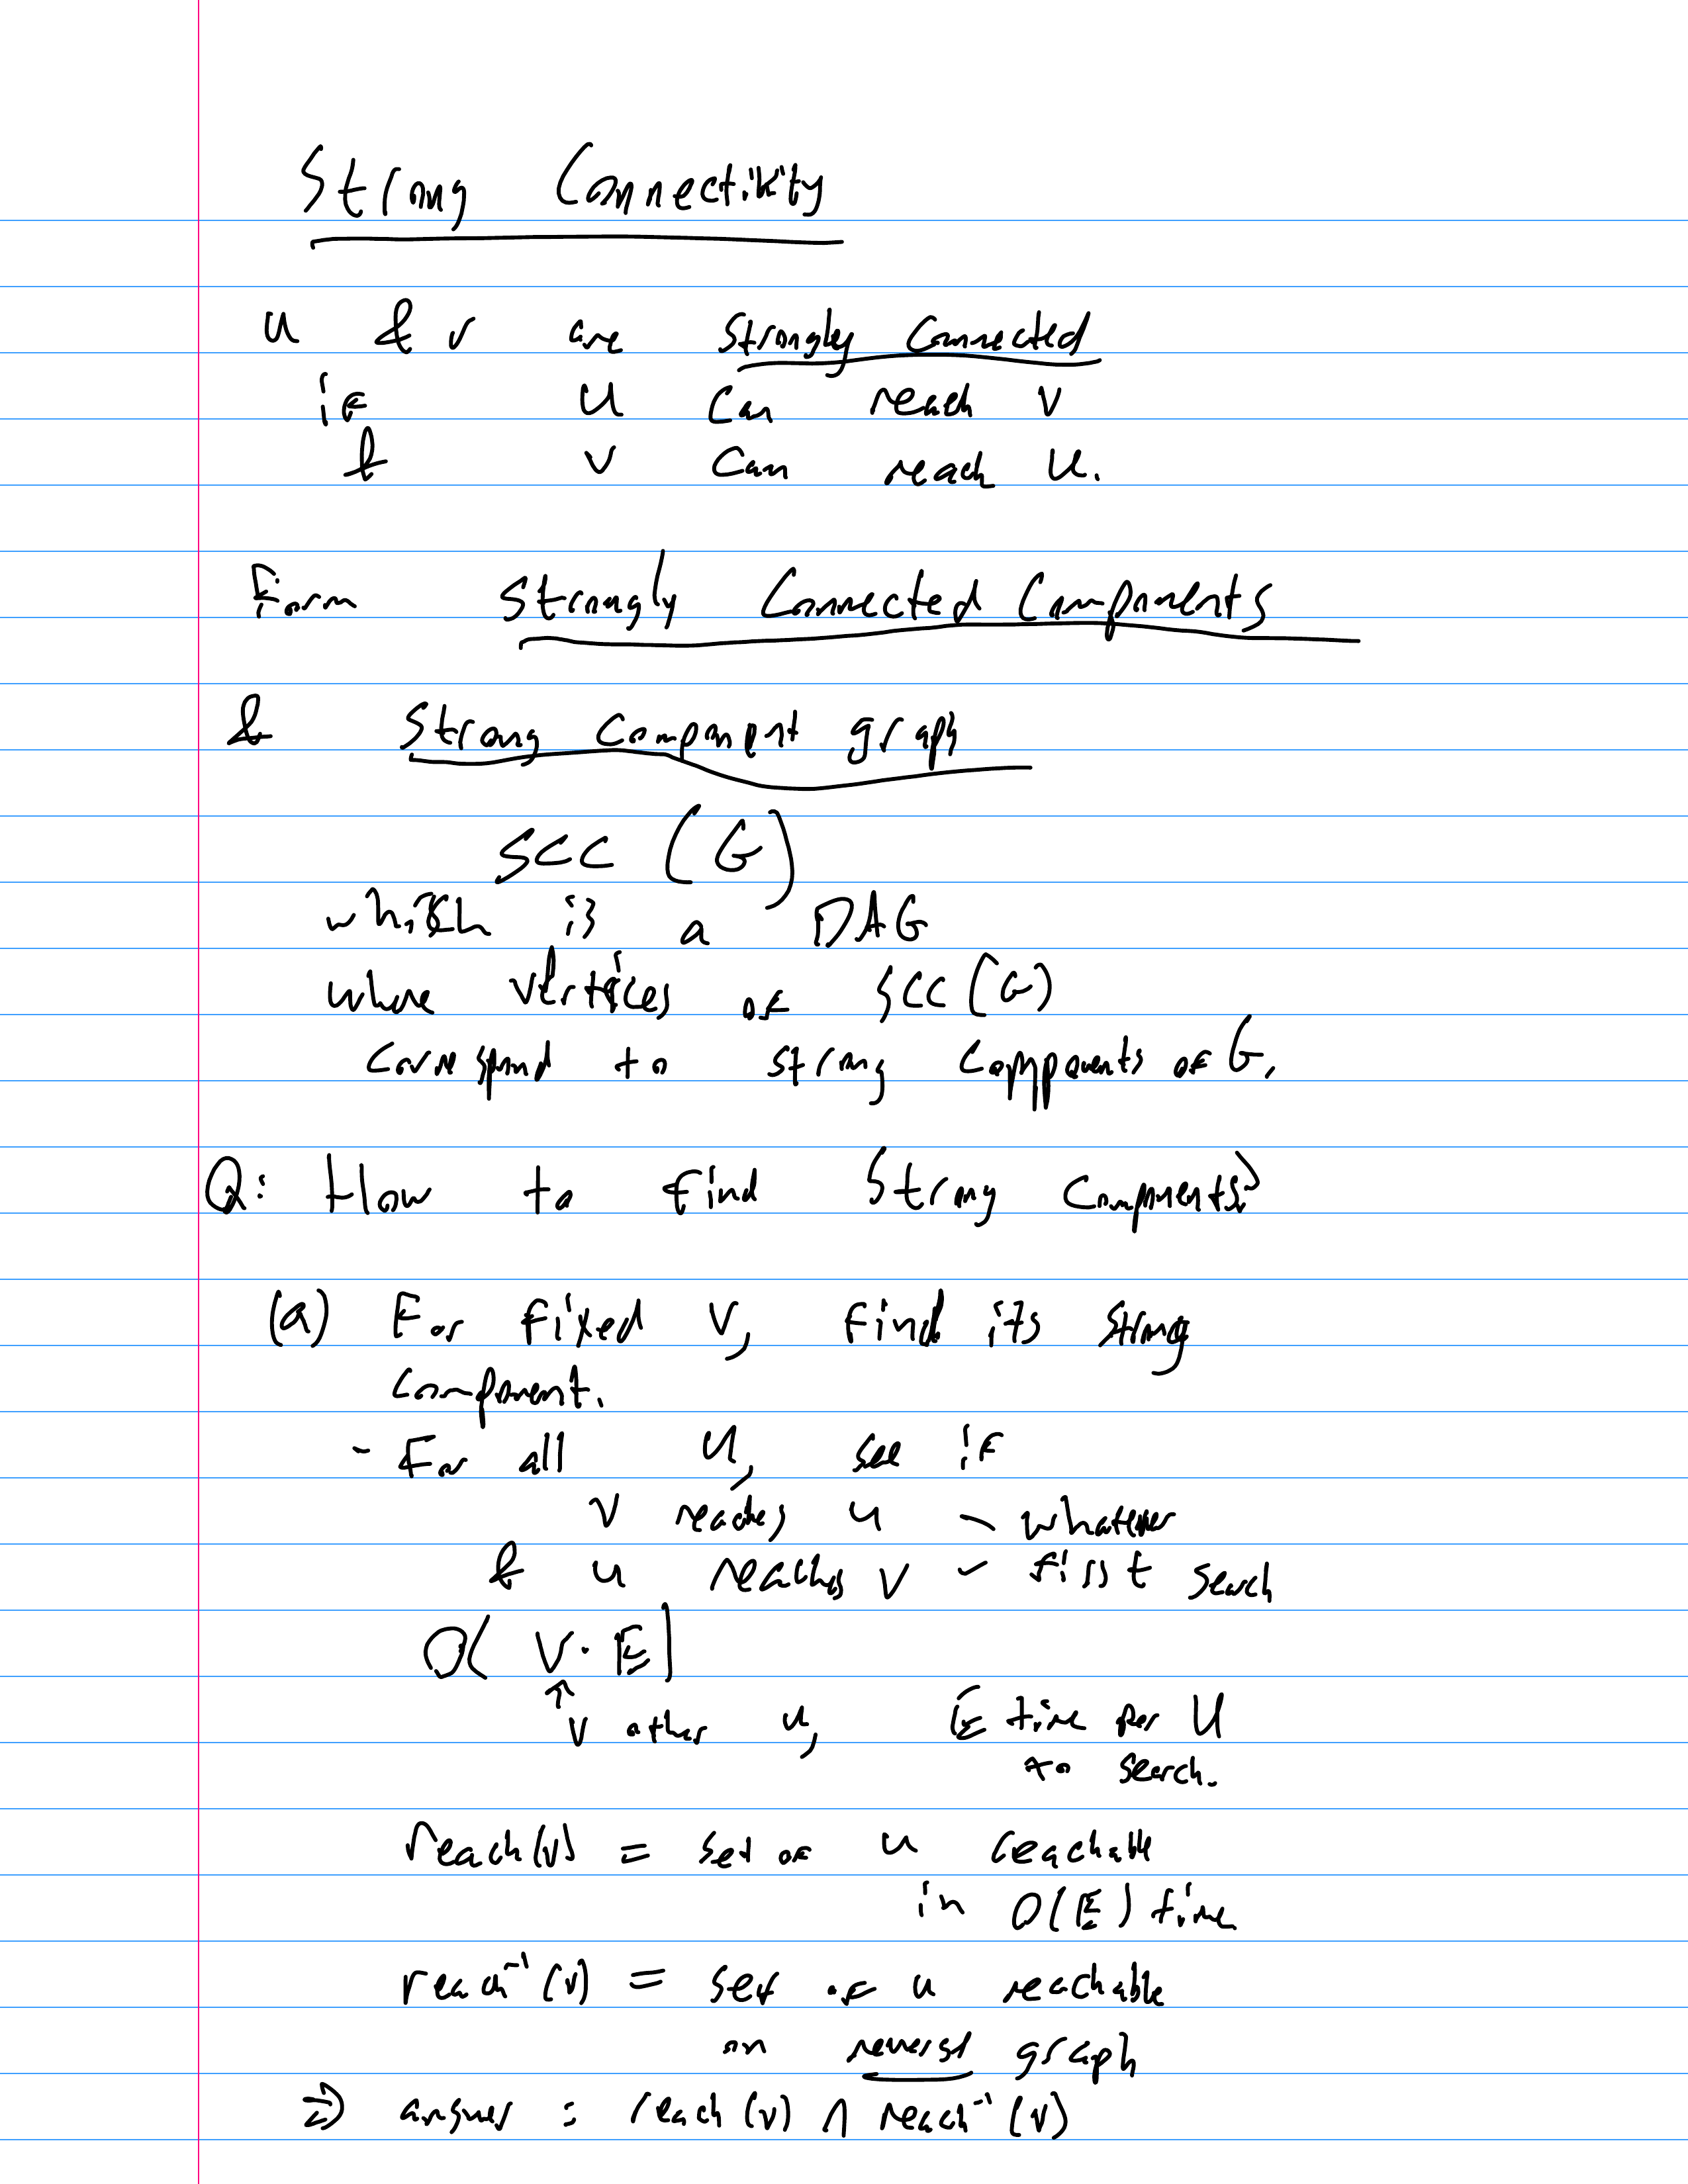 Strong Connectivity
u & v are strongly connected
if u can reach v
& v can reach u.
Form strongly connected components
& strong component graph
SCC (G)
which is a DAG
where vertices of SCC(G)
correspond to strong components of G.
Q: How to find strong components?
(a) For fixed v, find its strong
component.
- For all u, see if
v reaches u - whatever
& u reaches v - first search
O( V · E )
↑
V other u, E time per u
to search.
reach(v) = set of u reachable
in O(E) time
reach⁻¹(v) = set of u reachable
on reversed graph
⇒ answer : reach(v) ∩ reach⁻¹(v)